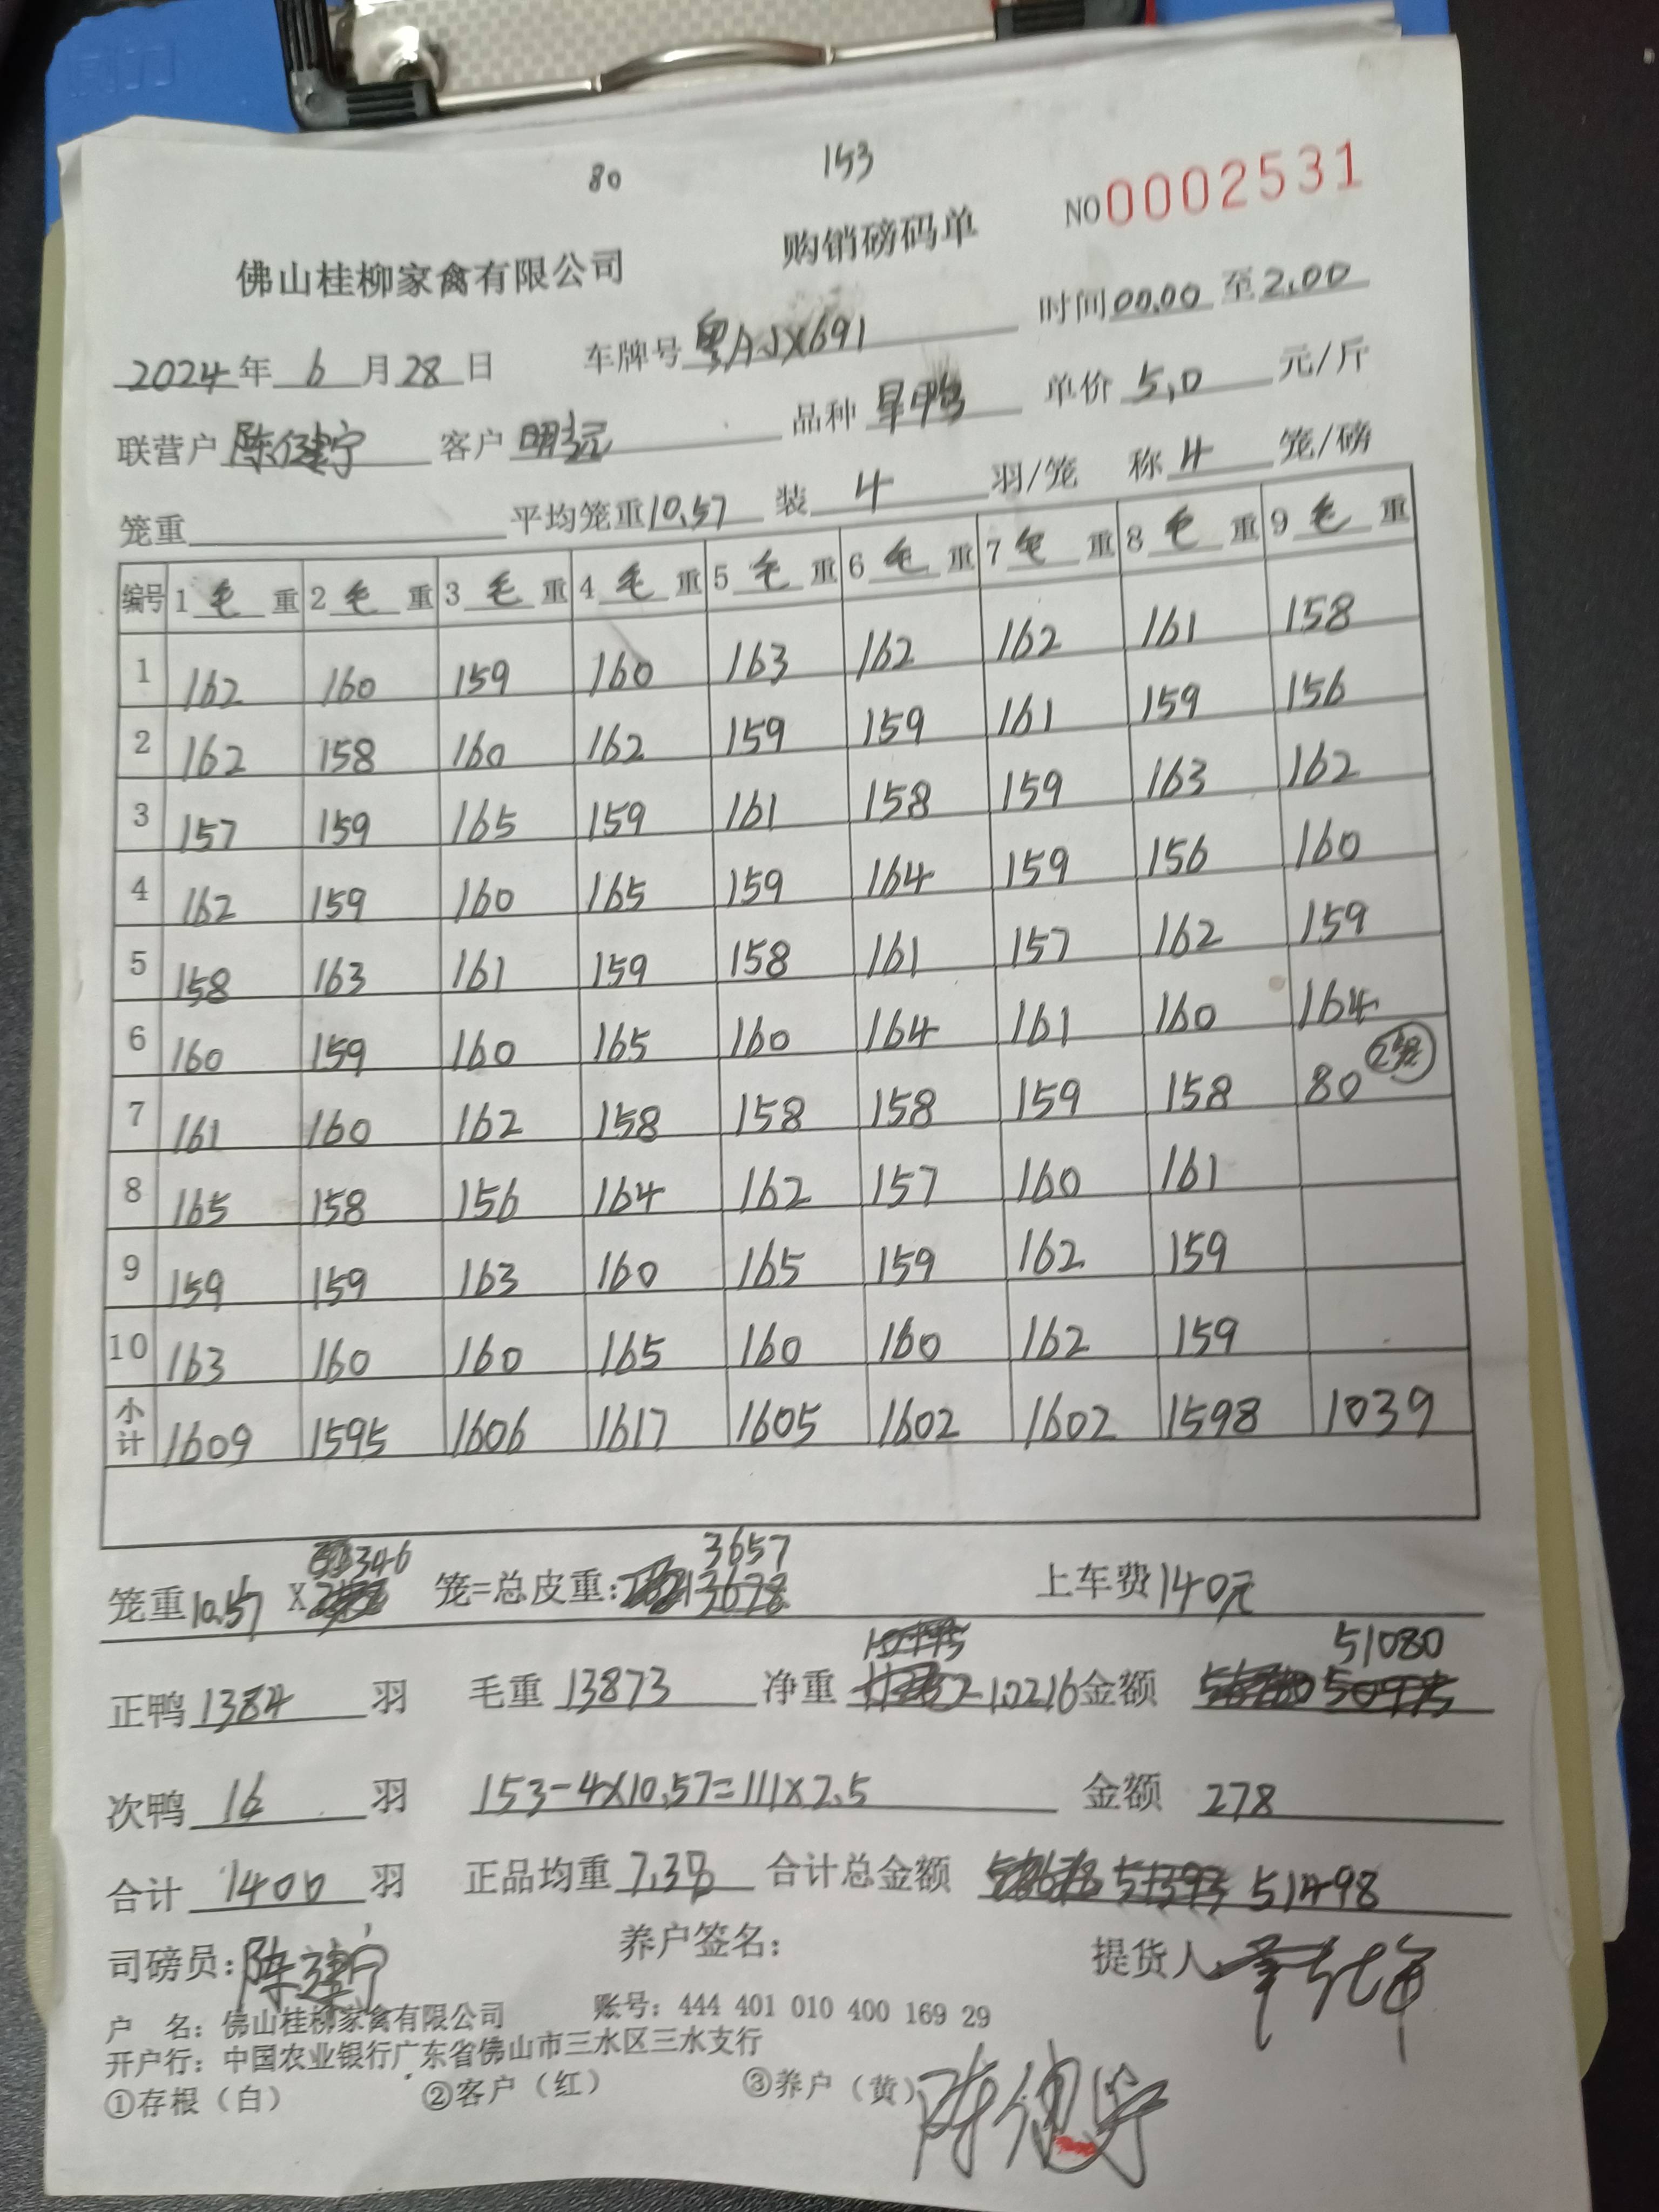 80 153
佛山桂柳家禽有限公司 购销磅码单 NO0002531
2024年 6 月 28 日 车牌号 粤AJX691 时间 00.00 至 2.00
联营户 陈健宁 客户 明远 品种 旱鸭 单价 5.0 元/斤
笼重 平均笼重 10.57 装 4 羽/笼 称 4 笼/磅
编号 1 毛 重 2 毛 重 3 毛 重 4 毛 重 5 毛 重 6 毛 重 7 毛 重 8 毛 重 9 毛 重
1 162 160 159 160 163 162 162 161 158
2 162 158 160 162 159 159 161 159 156
3 157 159 165 159 161 158 159 163 162
4 162 159 160 165 159 164 159 156 160
5 158 163 161 159 158 161 157 162 159
6 160 159 160 165 160 164 161 160 164
7 161 160 162 158 158 158 159 158 80 2笼
8 165 158 156 164 162 157 160 161
9 159 159 163 160 165 159 162 159
10 163 160 160 165 160 160 162 159
小计 1609 1595 1606 1617 1605 1602 1602 1598 1039
笼重 10.57 X 346 笼=总皮重: 3678 3657 上车费 140元
正鸭 1384 羽 毛重 13873 净重 10216 金额 51080
次鸭 16 羽 153-4X10.57=111X2.5 金额 278
合计 1400 羽 正品均重 7.38 合计总金额 51498
司磅员: 陈建宁 养户签名: 提货人
户 名: 佛山桂柳家禽有限公司 账号: 444 401 010 400 169 29
开户行: 中国农业银行广东省佛山市三水区三水支行
①存根（白） ②客户（红） ③养户（黄）